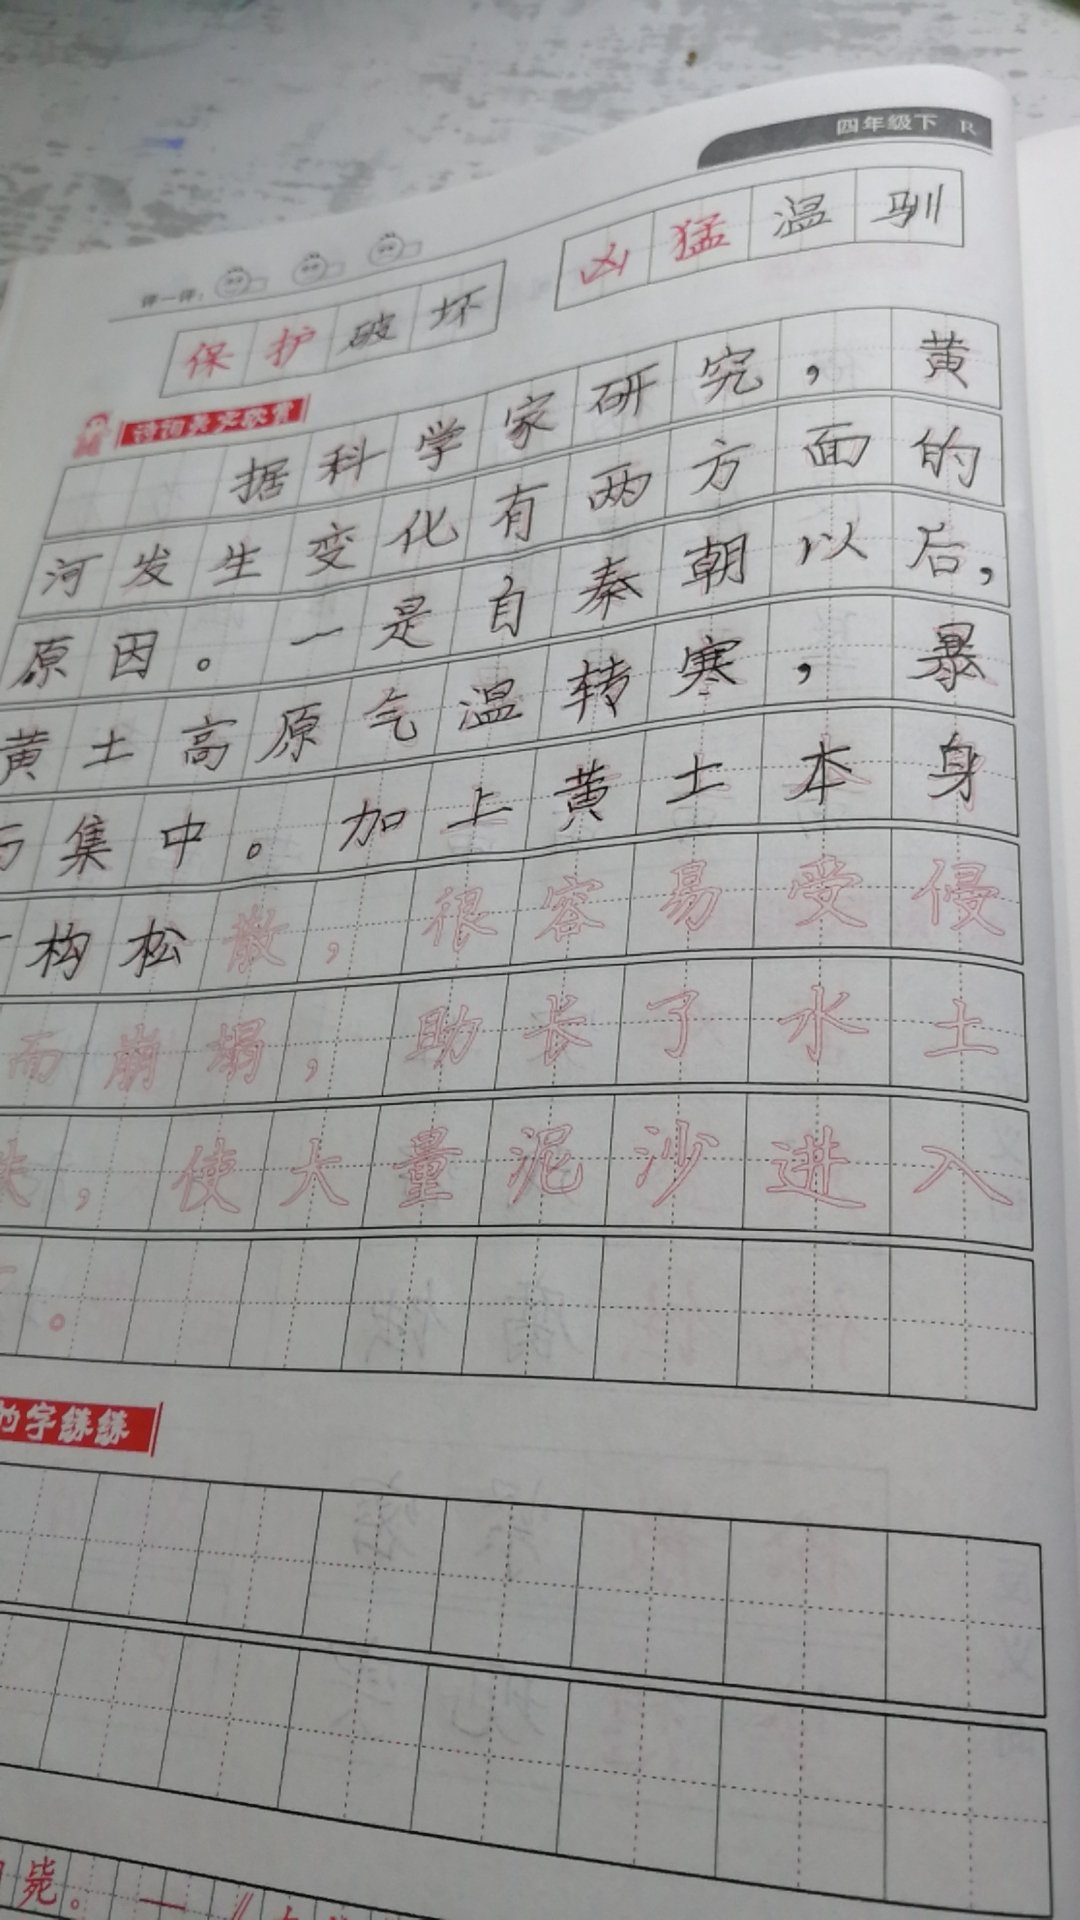 四年级下 R
评一评：
凶猛温驯
保护破坏
诗词美文欣赏
据科学家研究，黄
河发生变化有两方面的
原因。一是自秦朝以后，
黄土高原气温转寒，暴
集中。加上黄土本身
构松散，很容易受侵
而崩塌，助长了水土
，使大量泥沙进入
。
字练练
毙。—《